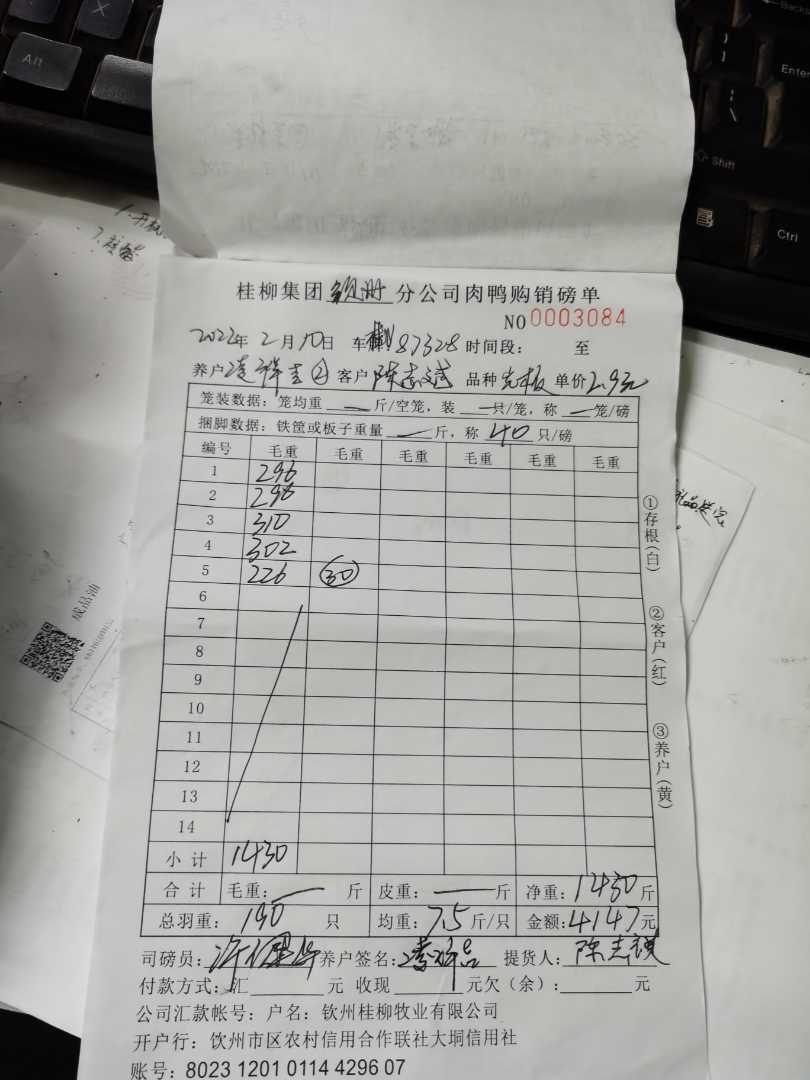 Alt
X
Enter
Shift
Ctrl
桂柳集团钦州分公司肉鸭购销磅单
NO 0003084
2022年2月10日 车 87328 时间段: 至
养户 客户陈志斌 品种 板 单价2.9元
笼装数据: 笼均重 — 斤/空笼, 装 — 只/笼, 称 — 笼/磅
捆脚数据: 铁筐或板子重量 — 斤, 称 40 只/磅
编号 毛重 毛重 毛重 毛重 毛重 毛重
1 296
2 296
3 310
4 302
5 226 30
6
7
8
9
10
11
12
13
14
小计 1430
合计 毛重: — 斤 皮重: — 斤 净重: 1430 斤
总羽重: 190 只 均重: 7.5 斤/只 金额: 4147 元
司磅员: 养户签名: 提货人: 陈志
付款方式: 汇 元 收现 元欠(余): 元
公司汇款帐号: 户名: 钦州桂柳牧业有限公司
开户行: 钦州市区农村信用合作联社大垌信用社
账号: 8023 1201 0114 4296 07
①存根(白)
②客户(红)
③养户(黄)
成品油